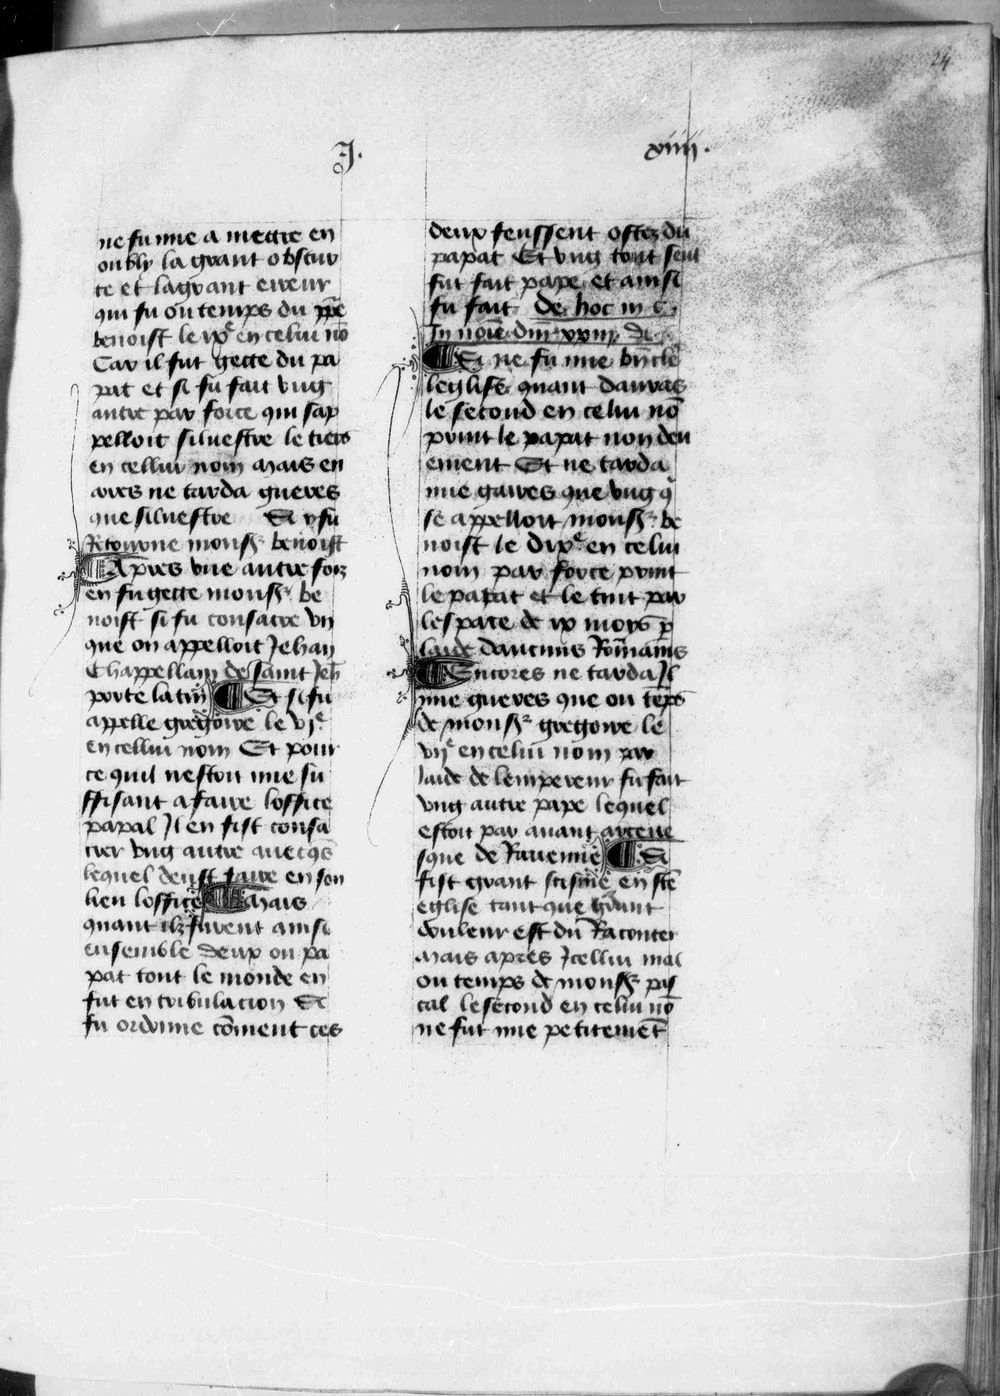 24
J.
xiiij.
ne fu mie a mettre en
oubly la grant obscur
te et la grant erreur
qui fu ou temps du ppe
benoist le ix e en celui nō
Car il fut gette du pa
pat et si fu fait vng
autre par force qui sap
pelloit siluestre le tiers
en cellui nom mais en
ares ne tarda gueres
que siluestre Si y fu
Retourne monsʳ benoist
¶ Apres vne autre foiz
en fu gette monsʳ be
noist si fu consacre vn
que on appelloit Jehan
Chappellain de saint Jeh̄
porte latin ¶ Et si fu
appelle gregoire le vj e
en cellui nom Et pour
ce quil nestoit mie su
ffisant a faire loffice
papal Il en fist consa
crer vng autre auecq̄s
lequel deust faire en son
lieu loffice ¶ Mais
quant ilz furent ainsi
ensemble deux ou pa
pat tout le monde en
fut en tribulacion Si
fu ordonne cōment ces
deux feussent ostez du
papat Et vng tout seul
fut fait pape et ainsi
fu fait de hoc in c.
In noīe dnī xxiij di
¶ Si ne fu mie bn̄ cle
leglise quant damas
le second en celui nō
print le papat non deu
ement Et ne tarda
mie gaires que vng q̄
se appelloit monsʳ be
noist le dix e en celui
nom par force print
le papat et le tint par
lespace de ix moys p̄
laide daucuns Rōmains
¶ Encores ne tarda Il
mie gueres que ou tēps
de monsʳ gregoire le
vij e en celui nom par
laide de lempereur fu fait
vng autre pape lequel
estoit par auant arceue
sque de Rauenne ¶ Si
fist grant scisme en ste
eglise tant que grant
douleur est du Raconter
Mais apres Icellui mal
ou temps de monsʳ pas
cal le second en celui nō
ne fut mie petitemēt